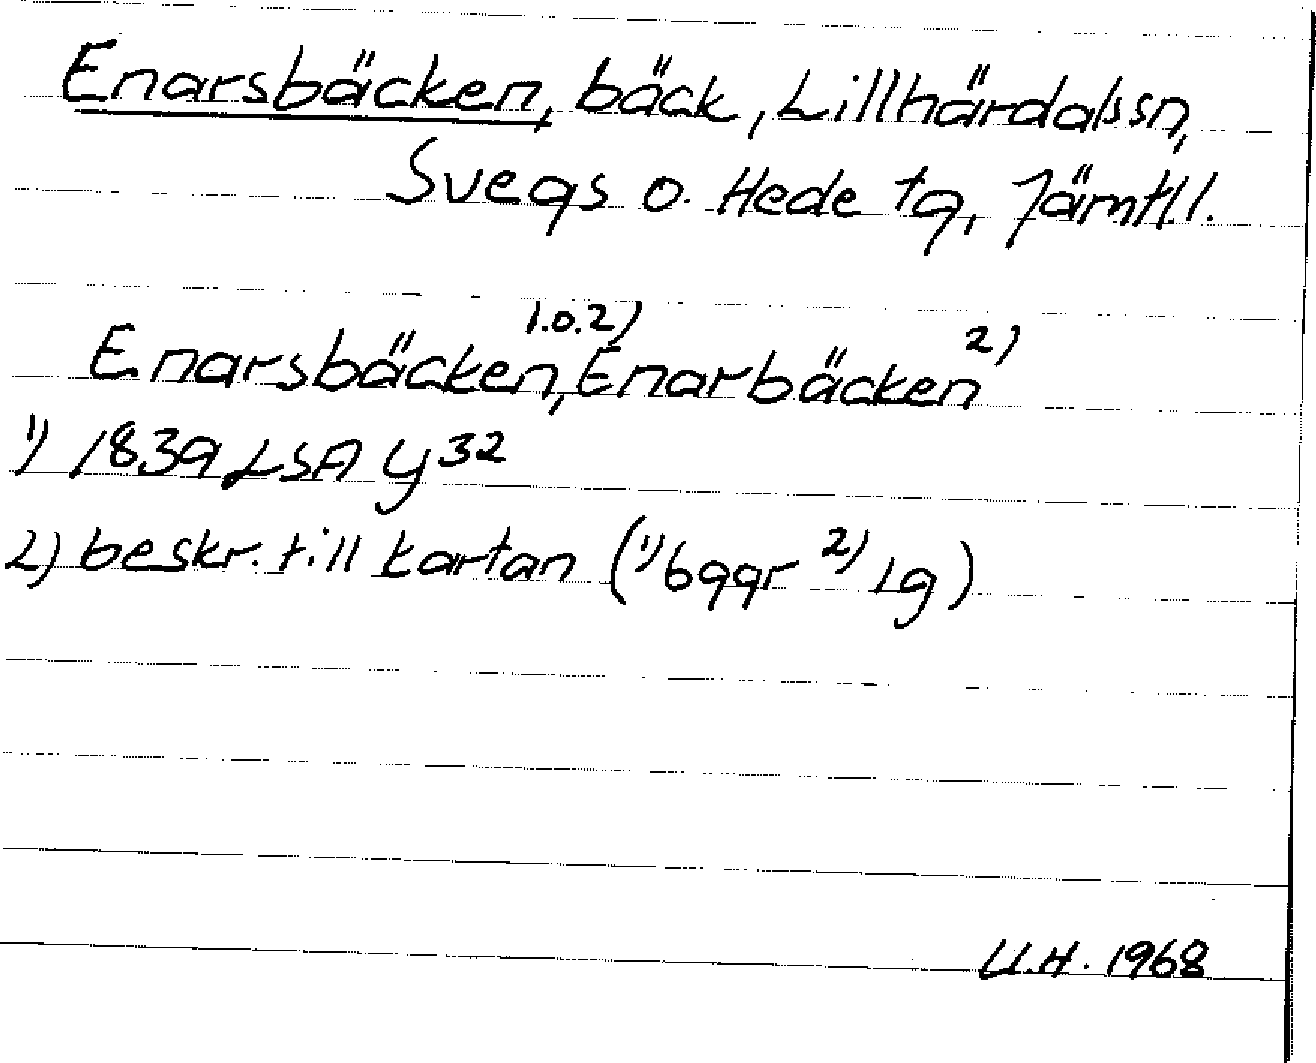 Enarsbäcken, bäck, Lillhärdals sn,
Svegs o. Hede tg, Jämtl.l.
Enarsbäcken, 1.o.2) Enarbäcken 2)
1) 1839 LSA y32
2) beskr. till kartan (1) 6ggr 2) 1g)
U.H. 1968